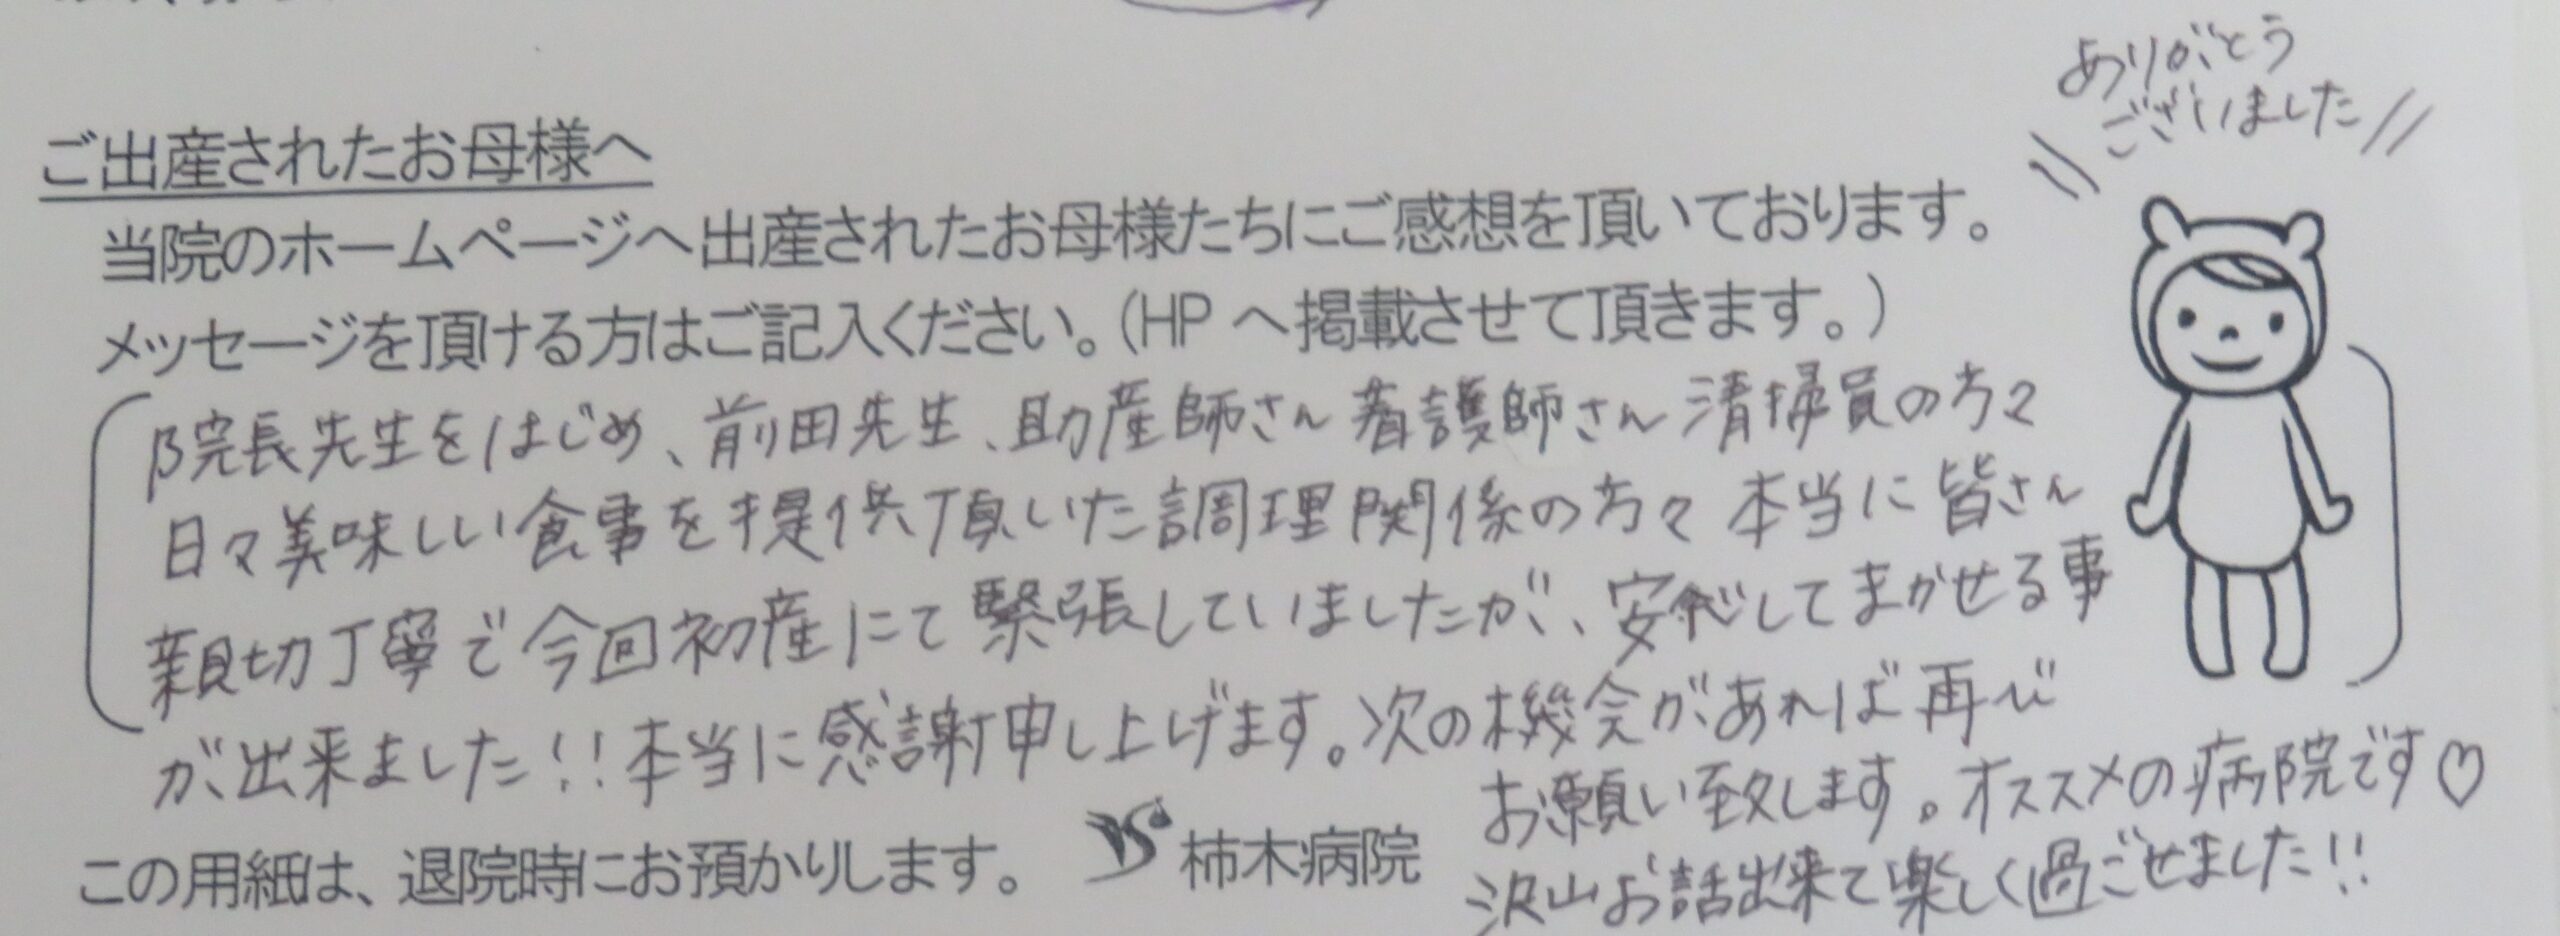 ありがとう
ございました
ご出産されたお母様へ
当院のホームページへ出産されたお母様たちにご感想を頂いております。
メッセージを頂ける方はご記入ください。(HP へ掲載させて頂きます。)
院長先生をはじめ、前田先生、助産師さん看護師さん清掃員の方々
日々美味しい食事を提供頂いた調理関係の方々本当に皆さん
親切丁寧で今回初産にて緊張していましたが、安心してまかせる事
が出来ました!!本当に感謝申し上げます。次の機会があれば再び
お願い致します。オススメの病院です♡
沢山お話出来て楽しく過ごせました!!
この用紙は、退院時にお預かりします。 柿木病院